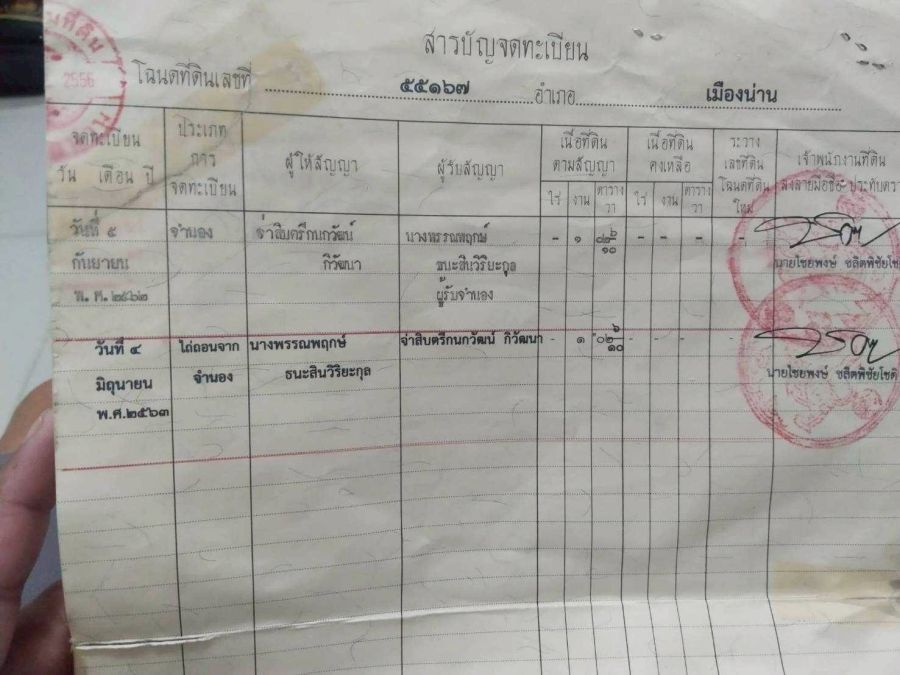 สารบัญจดทะเบียน
โฉนดที่ดินเลขที่ ๕๕๑๖๗ อำเภอ เมืองน่าน
2556
จดทะเบียน วัน เดือน ปี
ประเภทการจดทะเบียน
ผู้ให้สัญญา
ผู้รับสัญญา
เนื้อที่ดินตามสัญญา
เนื้อที่ดินคงเหลือ
ระวาง เลขที่ดิน โฉนดที่ดินใหม่
เจ้าพนักงานที่ดิน ลงลายมือชื่อ ประทับตรา
ไร่ งาน ตารางวา ไร่ งาน ตารางวา
วันที่ ๕ จำนอง จ่าสิบตรีกนกวัฒน์ นางพรรณพฤกษ์ - ๑ - - - -
กันยายน กิวัฒนา ธนะสินวิริยะกุล นายไชยพงษ์ ชลิตพิชัยโชติ
พ.ศ.๒๕๖๒ ผู้รับจำนอง
วันที่ ๔ ไถ่ถอนจาก นางพรรณพฤกษ์ จ่าสิบตรีกนกวัฒน์ กิวัฒนา - ๑ - - - -
มิถุนายน จำนอง ธนะสินวิริยะกุล นายไชยพงษ์ ชลิตพิชัยโชติ
พ.ศ.๒๕๖๓